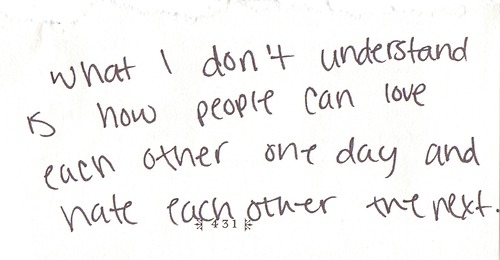 what I don't understand
is how people can love
each other one day and
hate each other the next.
431